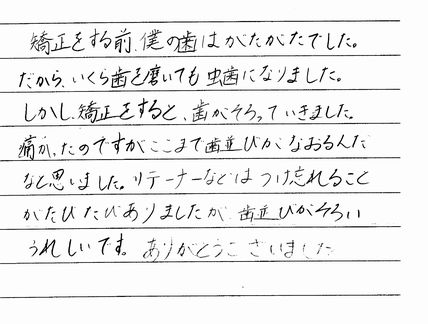 矯正をする前、僕の歯はがたがたでした。
だから、いくら歯を磨いても虫歯になりました。
しかし、矯正をすると、歯がそろっていきました。
痛かったのですがここまで歯並びがなおるんだ
なと思いました。リテーナーなどはつけ忘れること
がたびたびありましたが、歯並びがそろい
うれしいです。ありがとうございました